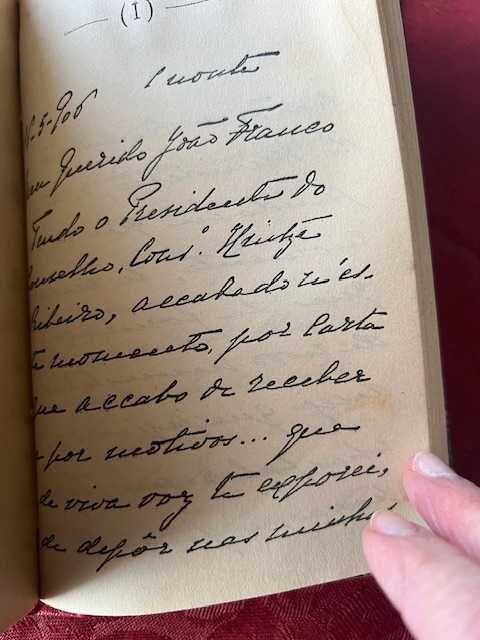 (I)
-5-906 1 noute
eu Querido João Franco
Tendo o Presidente do
Conselho, Cons.º Hintze
Ribeiro, accabado n'es-
te momento, por carta
que accabo de receber
e por motivos... que
de viva voz te exporei,
de depôr nas minhas